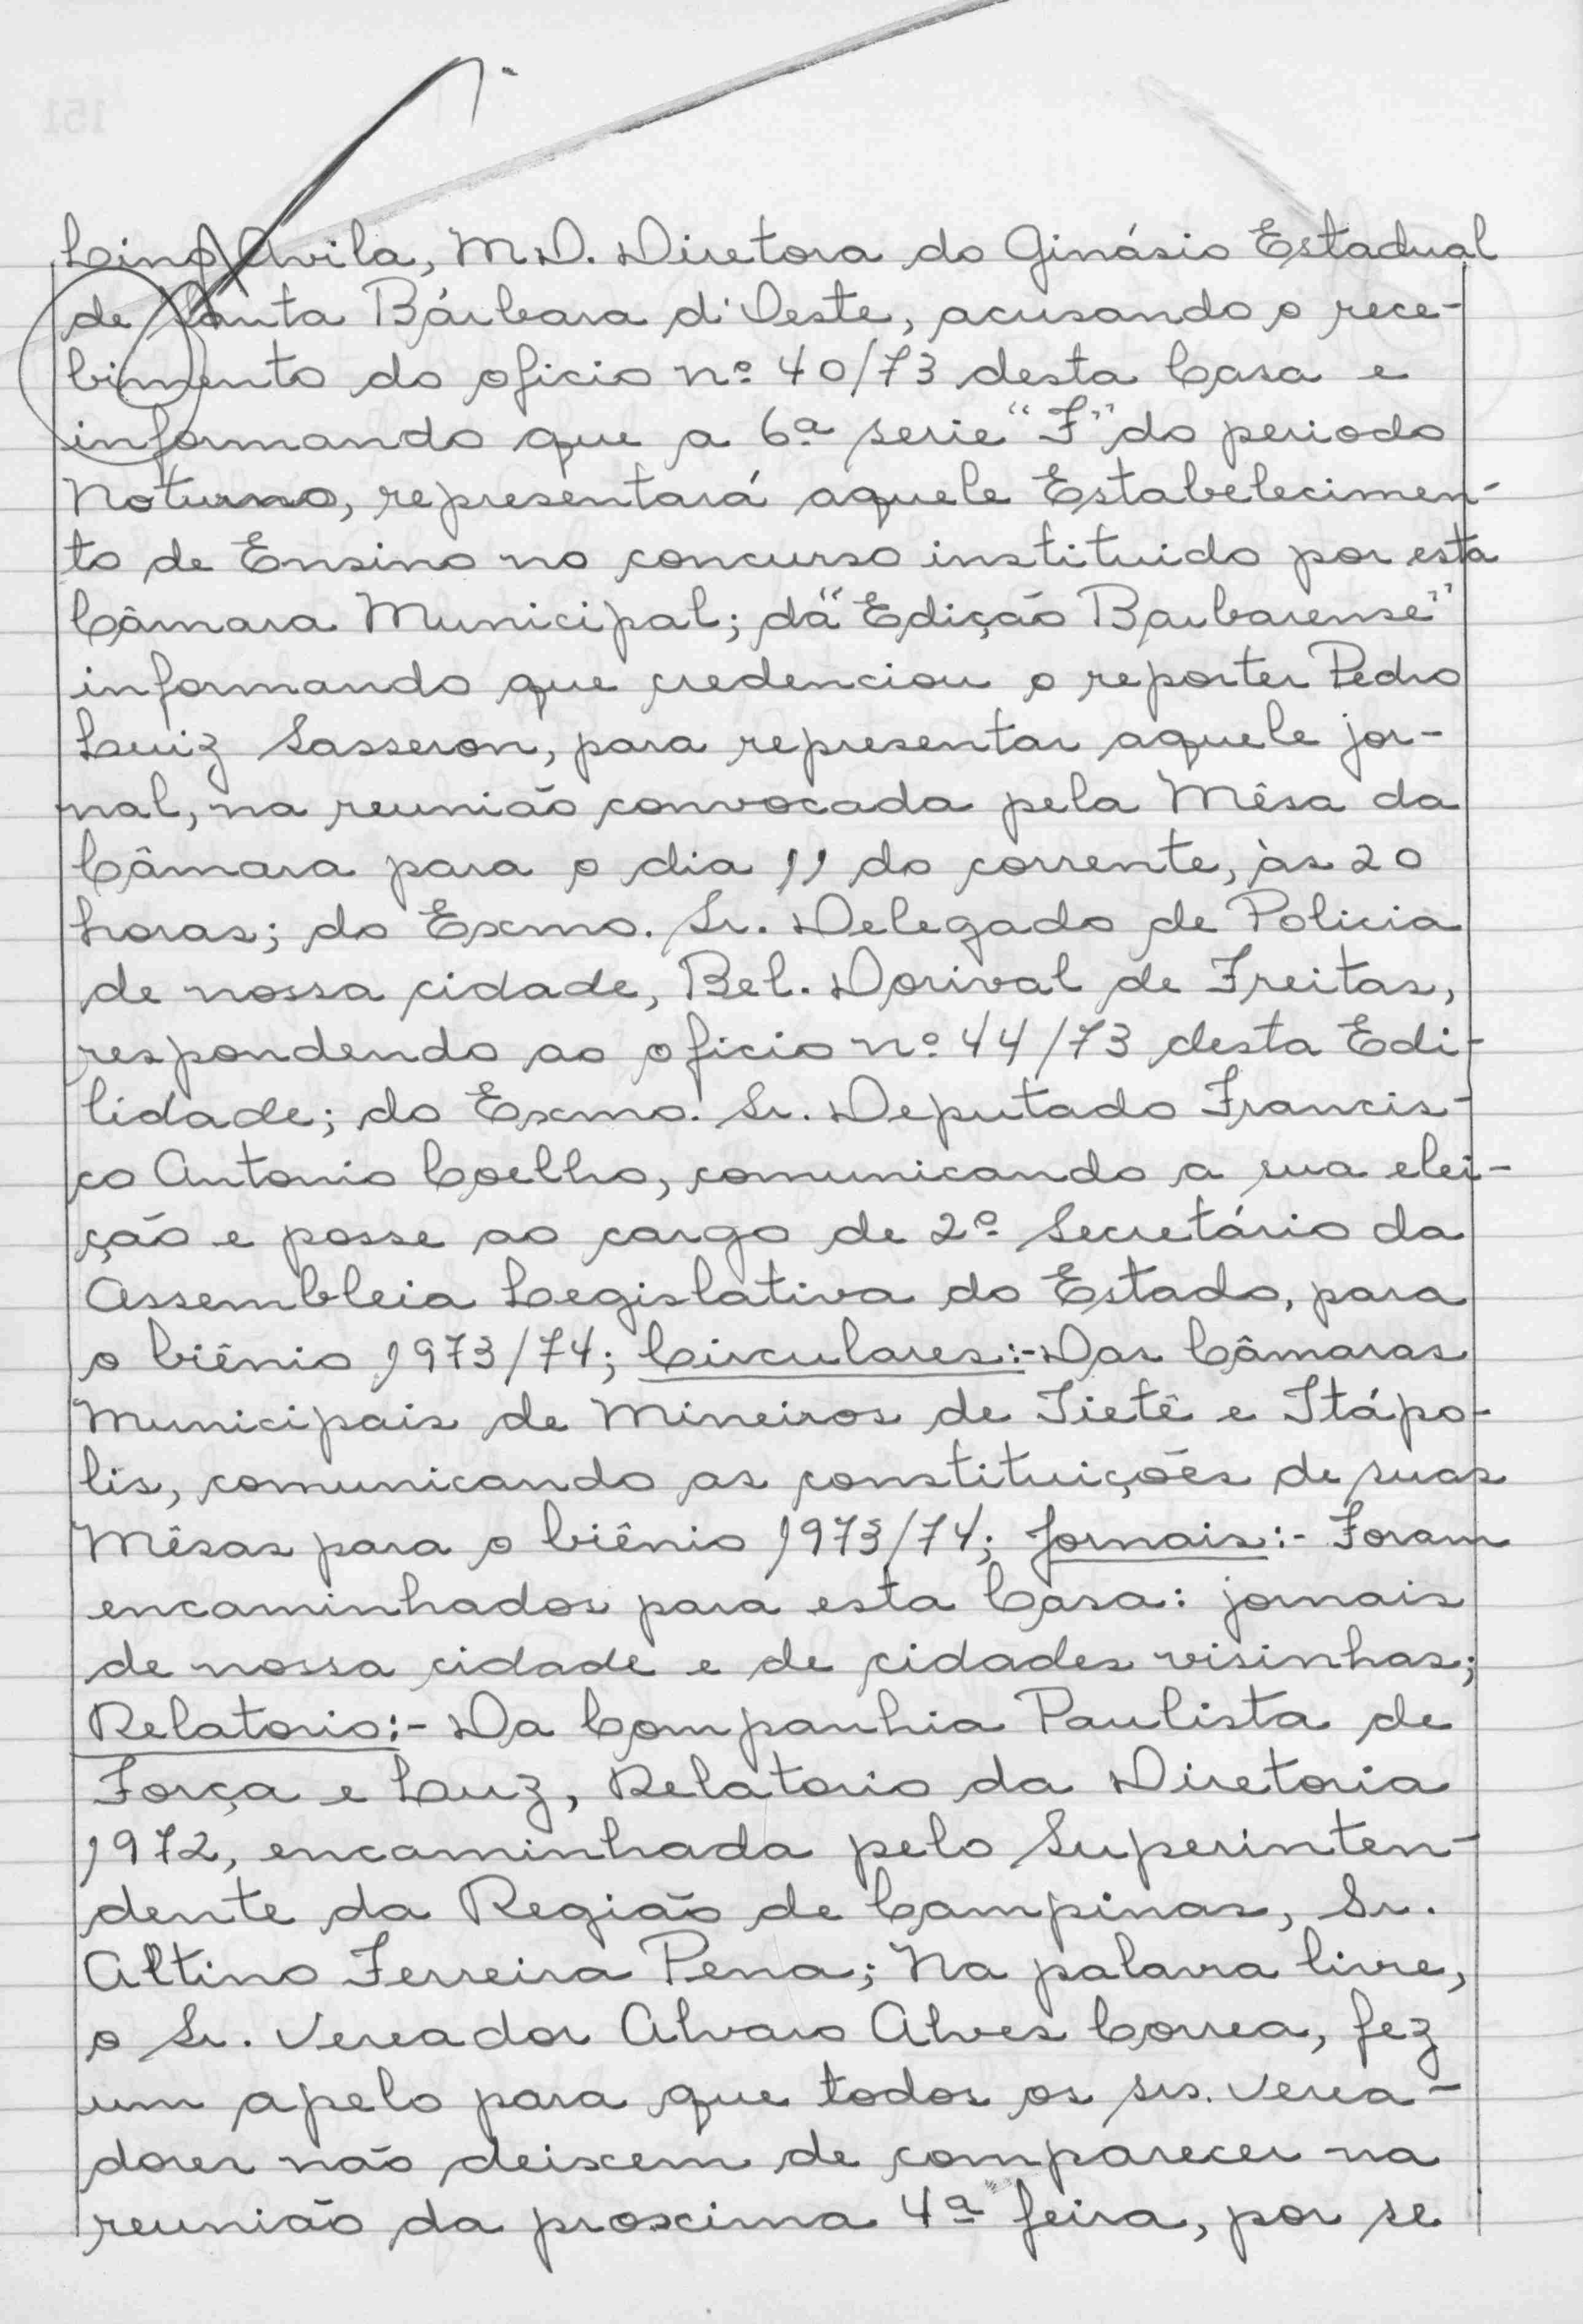 Lino Avila, M.D. Diretora do Ginásio Estadual
de Santa Bárbara d'Oeste, acusando o rece-
bimento do oficio nº 40/73 desta Casa e
informando que a 6ª serie "F" do periodo
Noturno, representará aquele Estabelecimen-
to de Ensino no concurso instituido por esta
Câmara Municipal; da "Edição Barbarense"
informando que credenciou o reporter Pedro
Luiz Sasseron, para representar aquele jor-
nal, na reunião convocada pela Mêsa da
Câmara para o dia 11 do corrente, às 20
horas; do Exmo. Sr. Delegado de Policia
de nossa cidade, Bel. Dorival de Freitas,
respondendo ao oficio nº 44/73 desta Edi-
lidade; do Exmo. Sr. Deputado Francis-
co Antonio Coelho, comunicando a sua elei-
ção e posse ao cargo de 2º Secretário da
Assembleia Legislativa do Estado, para
o biênio 1973/74; Circulares:- Das Câmaras
Municipais de Mineiros de Tietê e Itápo-
lis, comunicando as constituições de suas
Mêsas para o biênio 1973/74; Jornais:- Foram
encaminhados para esta Casa: jornais
de nossa cidade e de cidades visinhas;
Relatorio:- Da Companhia Paulista de
Força e Luz, Relatorio da Diretoria
1972, encaminhada pelo Superinten-
dente da Região de Campinas, Sr.
Altino Ferreira Pena; Na palavra livre,
o Sr. Vereador Alvaro Alves Correa, fez
um apelo para que todos os srs. Verea-
dores não deixem de comparecer na
reunião da proxima 4ª feira, por se